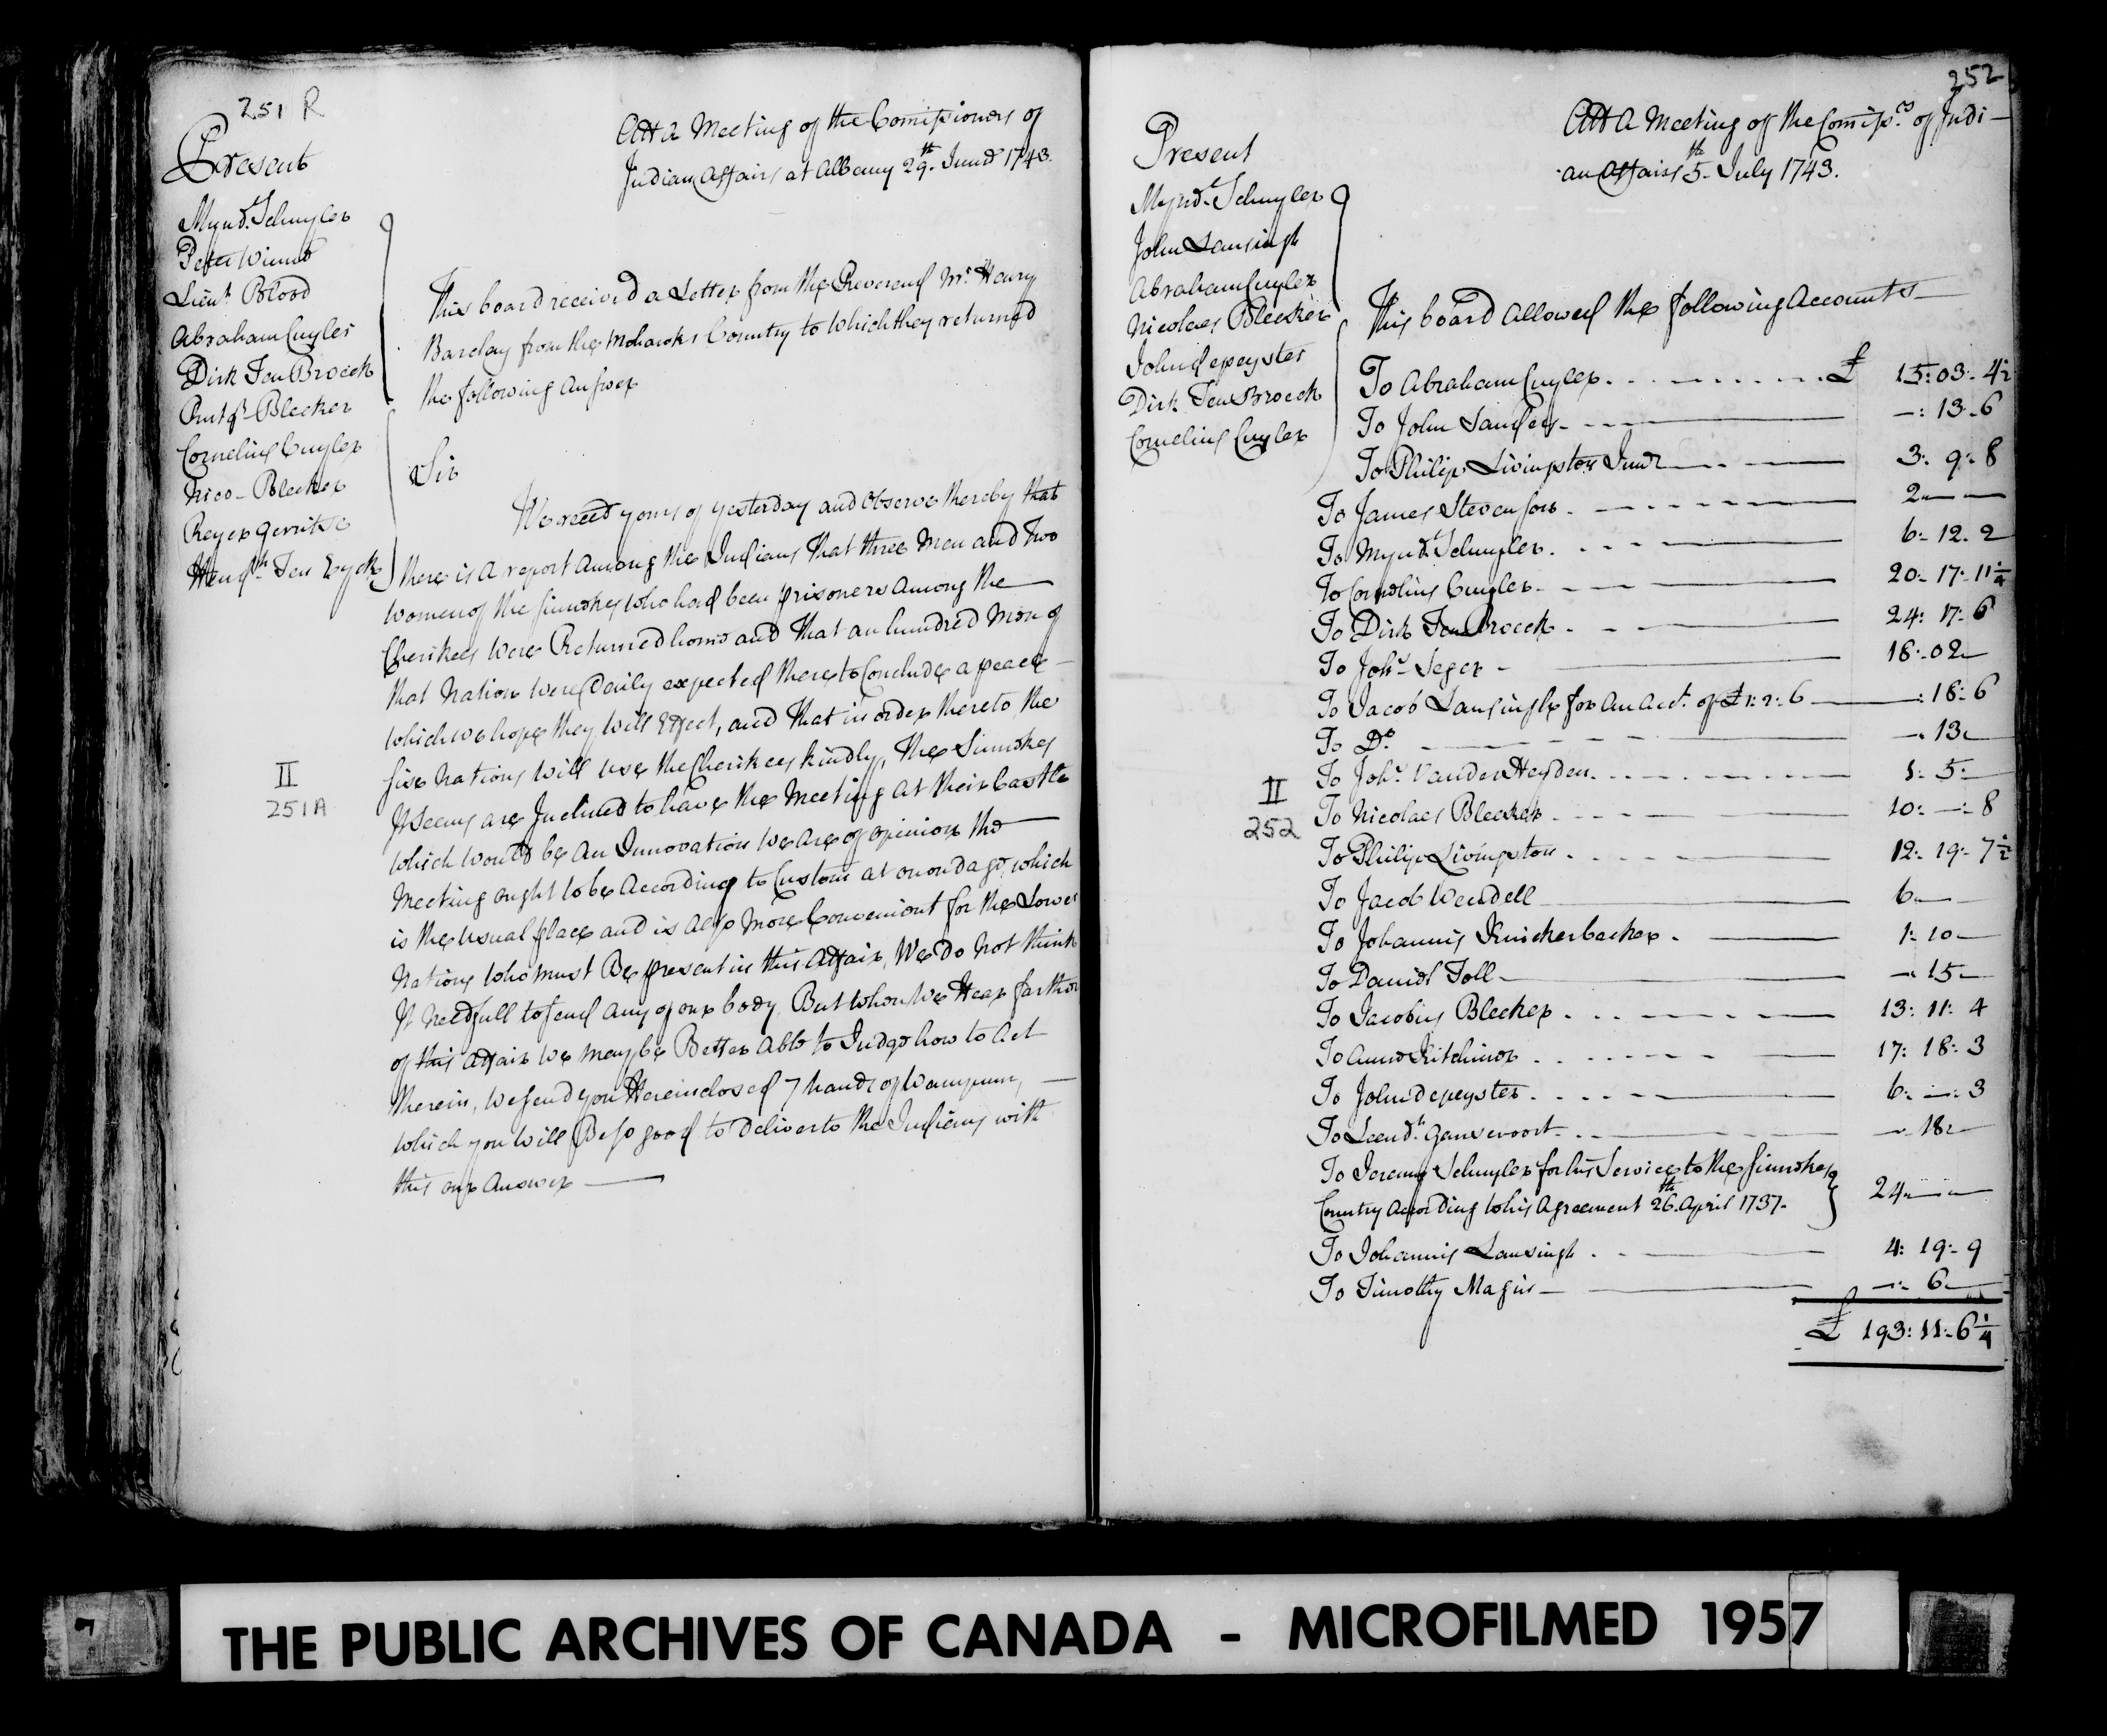 251 R
Present
Mynd.t Schuyler
Peter Winne
Lieut. Blood
Abraham Cuyler
Dirk Ten Broeck
Rutgr. Bleeker
Cornelius Cuyler
Nico. Bleeker
Reyer Gerritse
Hendk. Ten Eyck
Att a Meeting of the Comissioners of
Indian Affairs at Albany 29.th June 1743.
This board received a Letter from the Reverend Mr. Henry
Barclay from the Mohawks Country to which they returned
the following answer
Sir
We reced yours of yesterday and observe thereby that
there is a report among the Indians that three Men and Two
women of the Sinnekes who had been prisoners among the
Cherikees were Returned home and That an hundred Men of
that Nation were Daily expected there to Conclude a peace
which we hope they will Effect, and That in order thereto the
five Nations will use the Cherikees kindly, The Sinnekes
It seems are Inclined to have the Meeting at their Castle
which would be an Innovation we are of opinion the
Meeting ought to be According to Custom at onondago, which
is the usual place and is also more Convenient for the Lower
Nations who must Be present in this Affair, We do not think
It needfull to send any of our body But when we Hear farther
of this affair we may be Better Able to Judge how to Act
therein, we send you Hereinclosed 7 hands of Wampum,
which you will Be so good to Deliver to the Indians with
this our Answer
II
251A
252
Present
Mynd.t Schuyler
John Lansingh
Abraham Cuyler
Nicolaes Bleeker
John depeyster
Dirk Ten Broeck
Cornelius Cuyler
Att a Meeting of the Comiss.rs of Indi-
an Affairs 5.th July 1743.
This board Allowed the following Accounts
To Abraham Cuyler. £ 15: 03: 4½
To John Sanders - -: 13. 6
To Philip Livingston Junr 3: 9: 8
To James Stevenson. 2 - -
To Mynd.t Schuyler. 6: 12. 2
To Cornelius Cuyler. 20: 17: 11¼
To Dirk Ten Broeck. 24: 17: 6
To Joh.s Seger - 18: 02 -
To Jacob Lansingh for An Acct. of £1: 2: 6 : 18: 6
To Do. -. 13.
To Joh.s VanderHeyden. 1: 5:
To Nicolaes Bleeker. 10: -: 8
To Philip Livingston. 12: 19: 7½
To Jacob Wendell 6 - -
To Johannis Knickerbacker. 1: 10 -
To Daniel Toll - -. 15 -
To Jacobus Bleeker. 13: 11: 4
To Anne Kitchiner. 17: 18: 3
To John depeyster. 6: -: 3
To Leend.t Gansevoort. -. 18 -
To Jeremy Schuyler for his Service to the Sinnekes
Country According to his Agreement 26.th April 1737. 24 - -
To Johannis Lansingh. 4: 19: 9
To Timothy Magin - -: 6
£ 193: 11: 6¼
II
252
7
THE PUBLIC ARCHIVES OF CANADA - MICROFILMED 1957